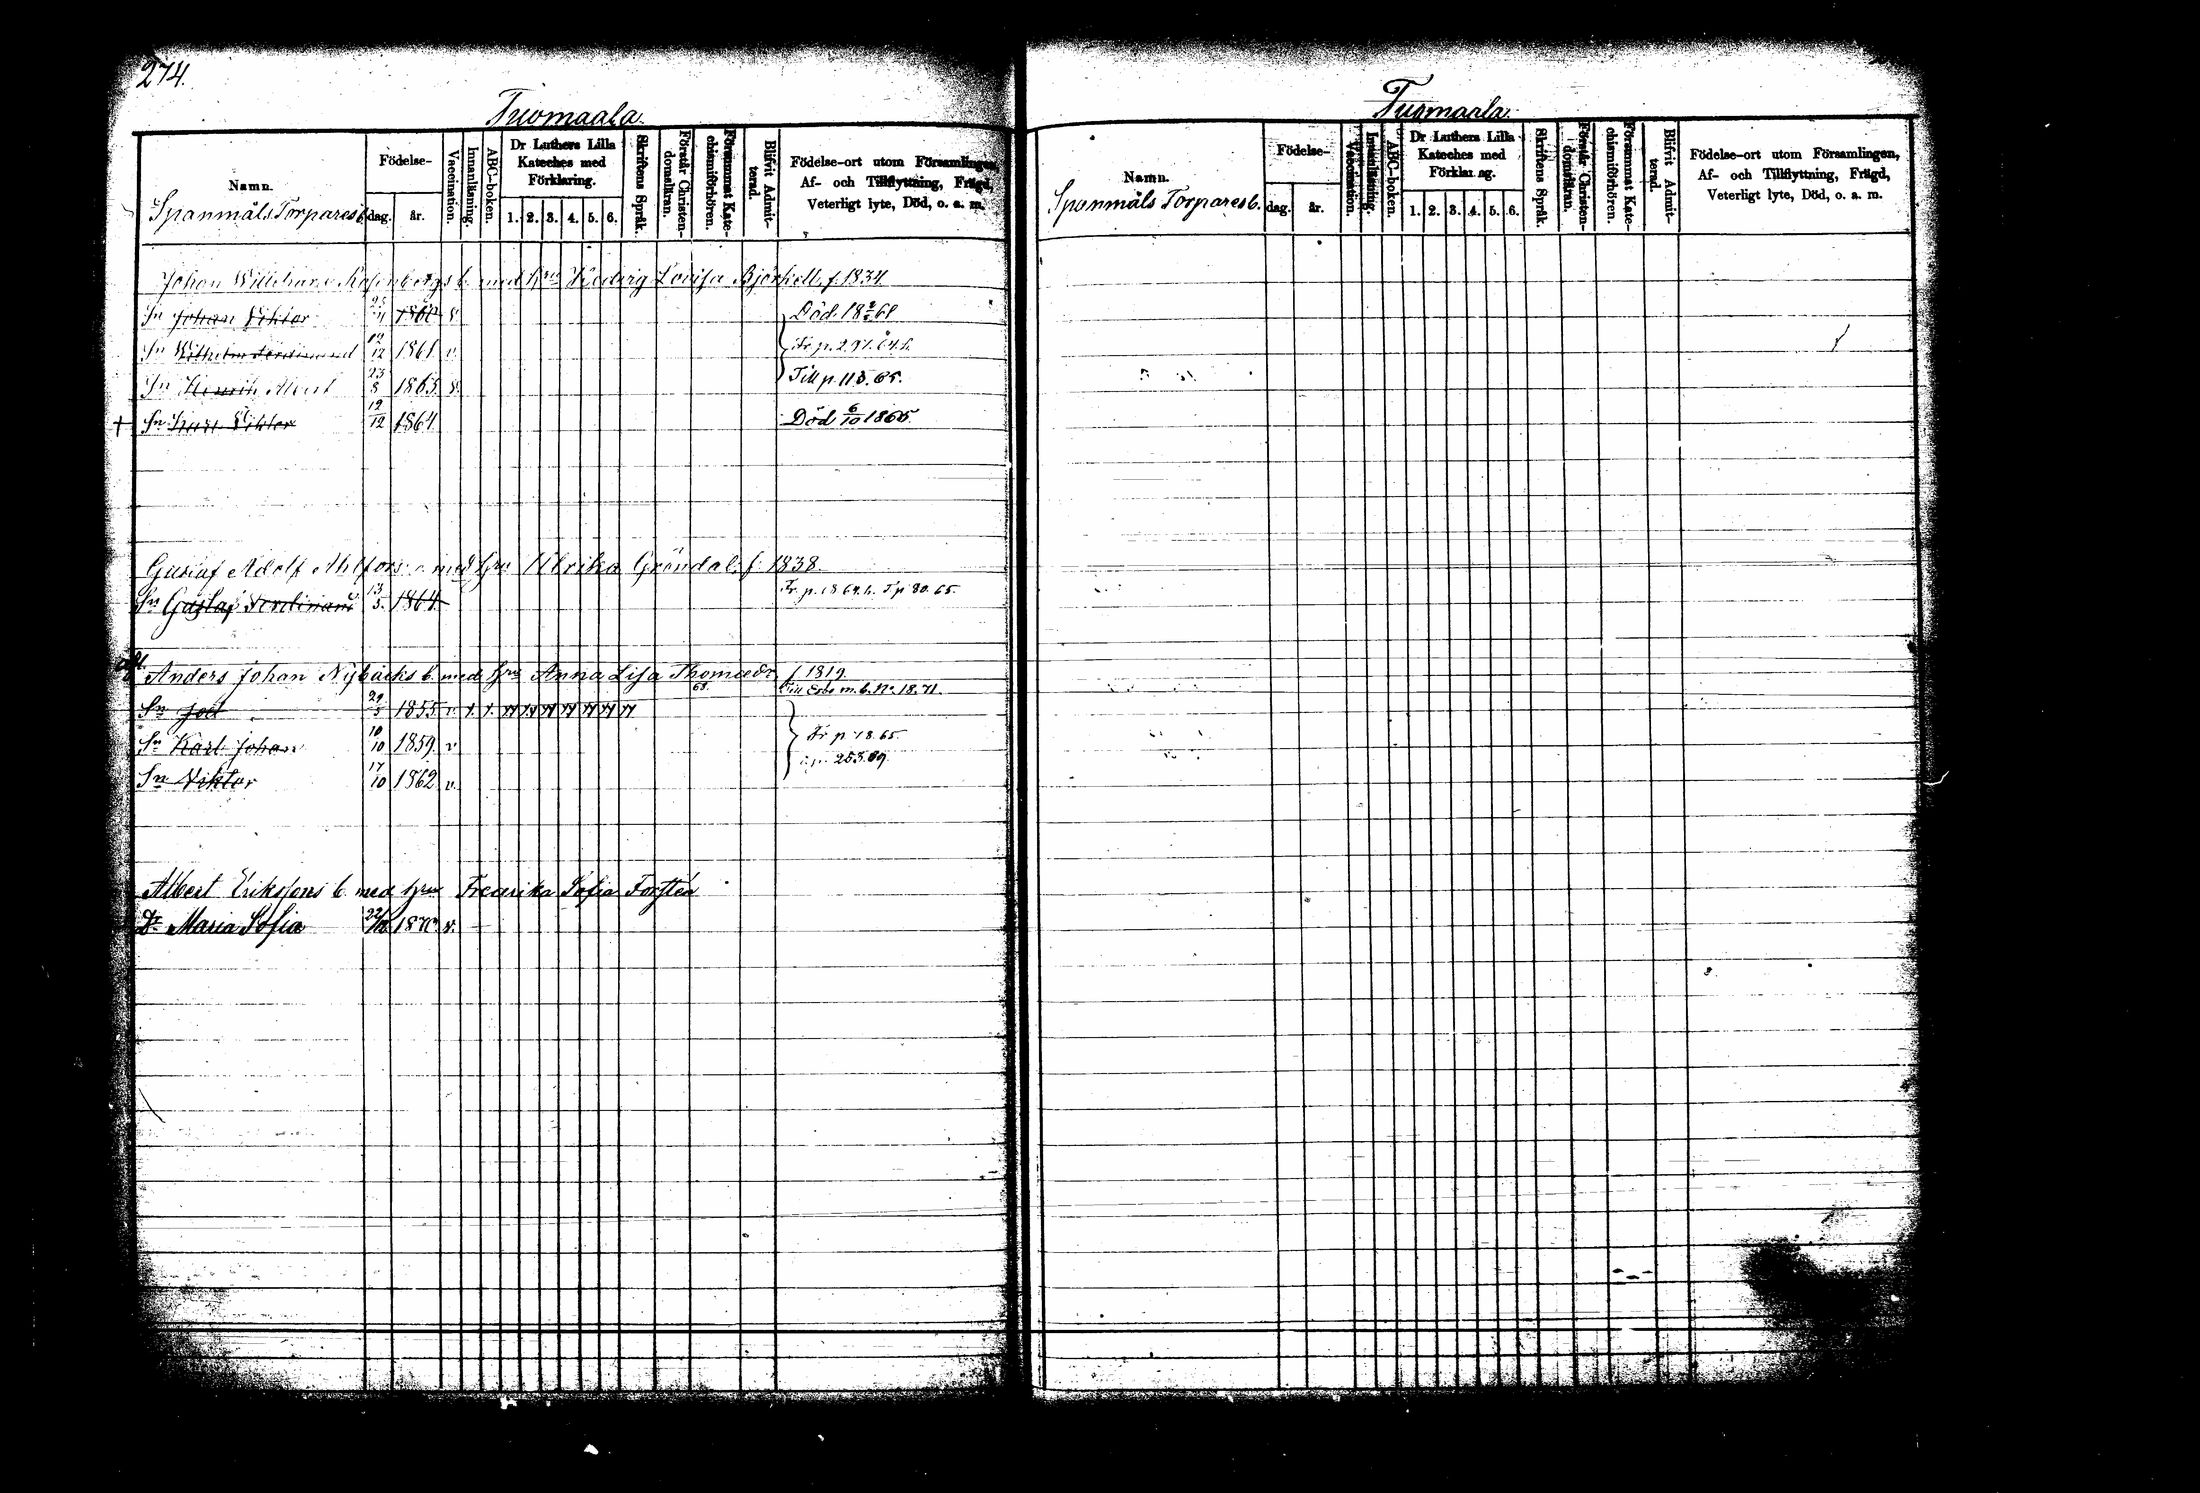 274.
Tuomaala.
Namn.
Spanmåls Torpares b.
Födelse-
dag.
år.
Vaccination.
Innanläsning.
ABC-boken.
Dr Luthers Lilla
Kateches med
Förklaring.
1. 2. 3. 4. 5. 6.
Skriftens Språk.
Förstår Christen-
domsläran.
Försummat Kate-
chismiförhören.
Blifvit Admit-
terad.
Födelse-ort utom Församlingen,
Af- och Tillflyttning, Frägd,
Veterligt lyte, Död, o. a. m.
Johan b. med hru Hedvig Lovisa Björkell f. 1834.
Sn Johan Viktor 25/11 1860 v. Död 61
Sn Wilhelm Ferdinand 12/12 1861 v. Fr p. 291. 64.
Sn Henrik Albert 23/8 1863 v. Till p. 113. 65.
+ Sn Karl Viktor 12/12 1864 Död 6/10 1865.
Gustaf Adolf Ahlfors med hru Ulrika Gröndal f. 1838.
Sn Gustaf Ferdinand 13/5. 1864 Fr. p. 18 64. T p 80. 65.
Anders Johan Nybäcks b. med hru Anna Lisa Thomædr f. 1819.
68. m. b. No 18. 71.
Sn Joel 29/5 1855 v.
Sn Karl Johan 10/10 1859 v Fr p 18. 65.
253. 69.
Sn Viktor 17/10 1862 v.
Albert Erikssons b. med hru Fredrika Sofia Forstén
Dr Maria Sofia 22/12 1870. v.
Tuomaala.
Namn.
Spanmåls Torpares b.
Födelse-
dag.
år.
Vaccination.
Innanläsning.
ABC-boken.
Dr Luthers Lilla
Kateches med
Förklaring.
1. 2. 3. 4. 5. 6.
Skriftens Språk.
Förstår Christen-
domsläran.
Försummat Kate-
chismiförhören.
Blifvit Admit-
terad.
Födelse-ort utom Församlingen,
Af- och Tillflyttning, Frägd,
Veterligt lyte, Död, o. a. m.